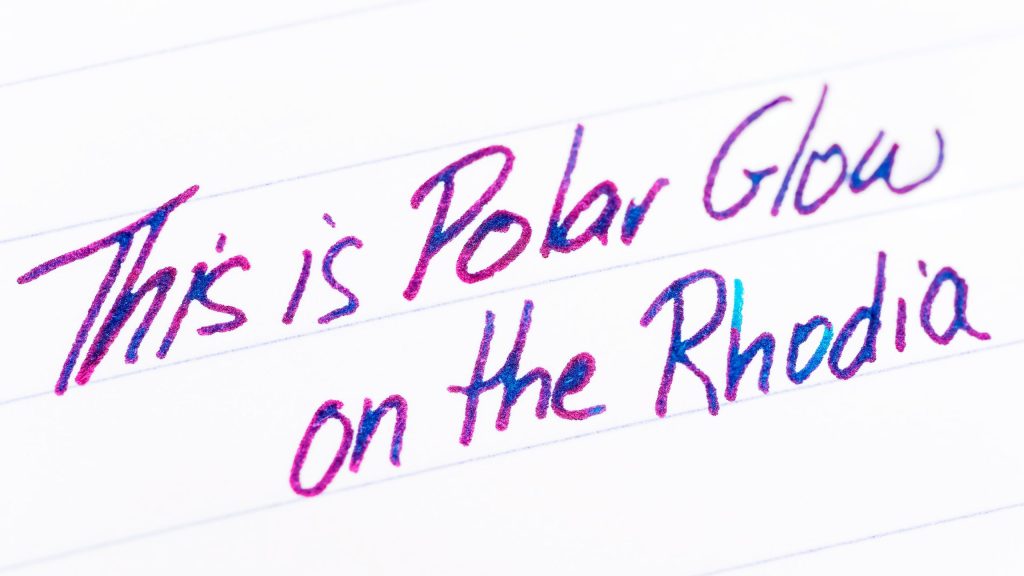 This is Polar Glow
on the Rhodia